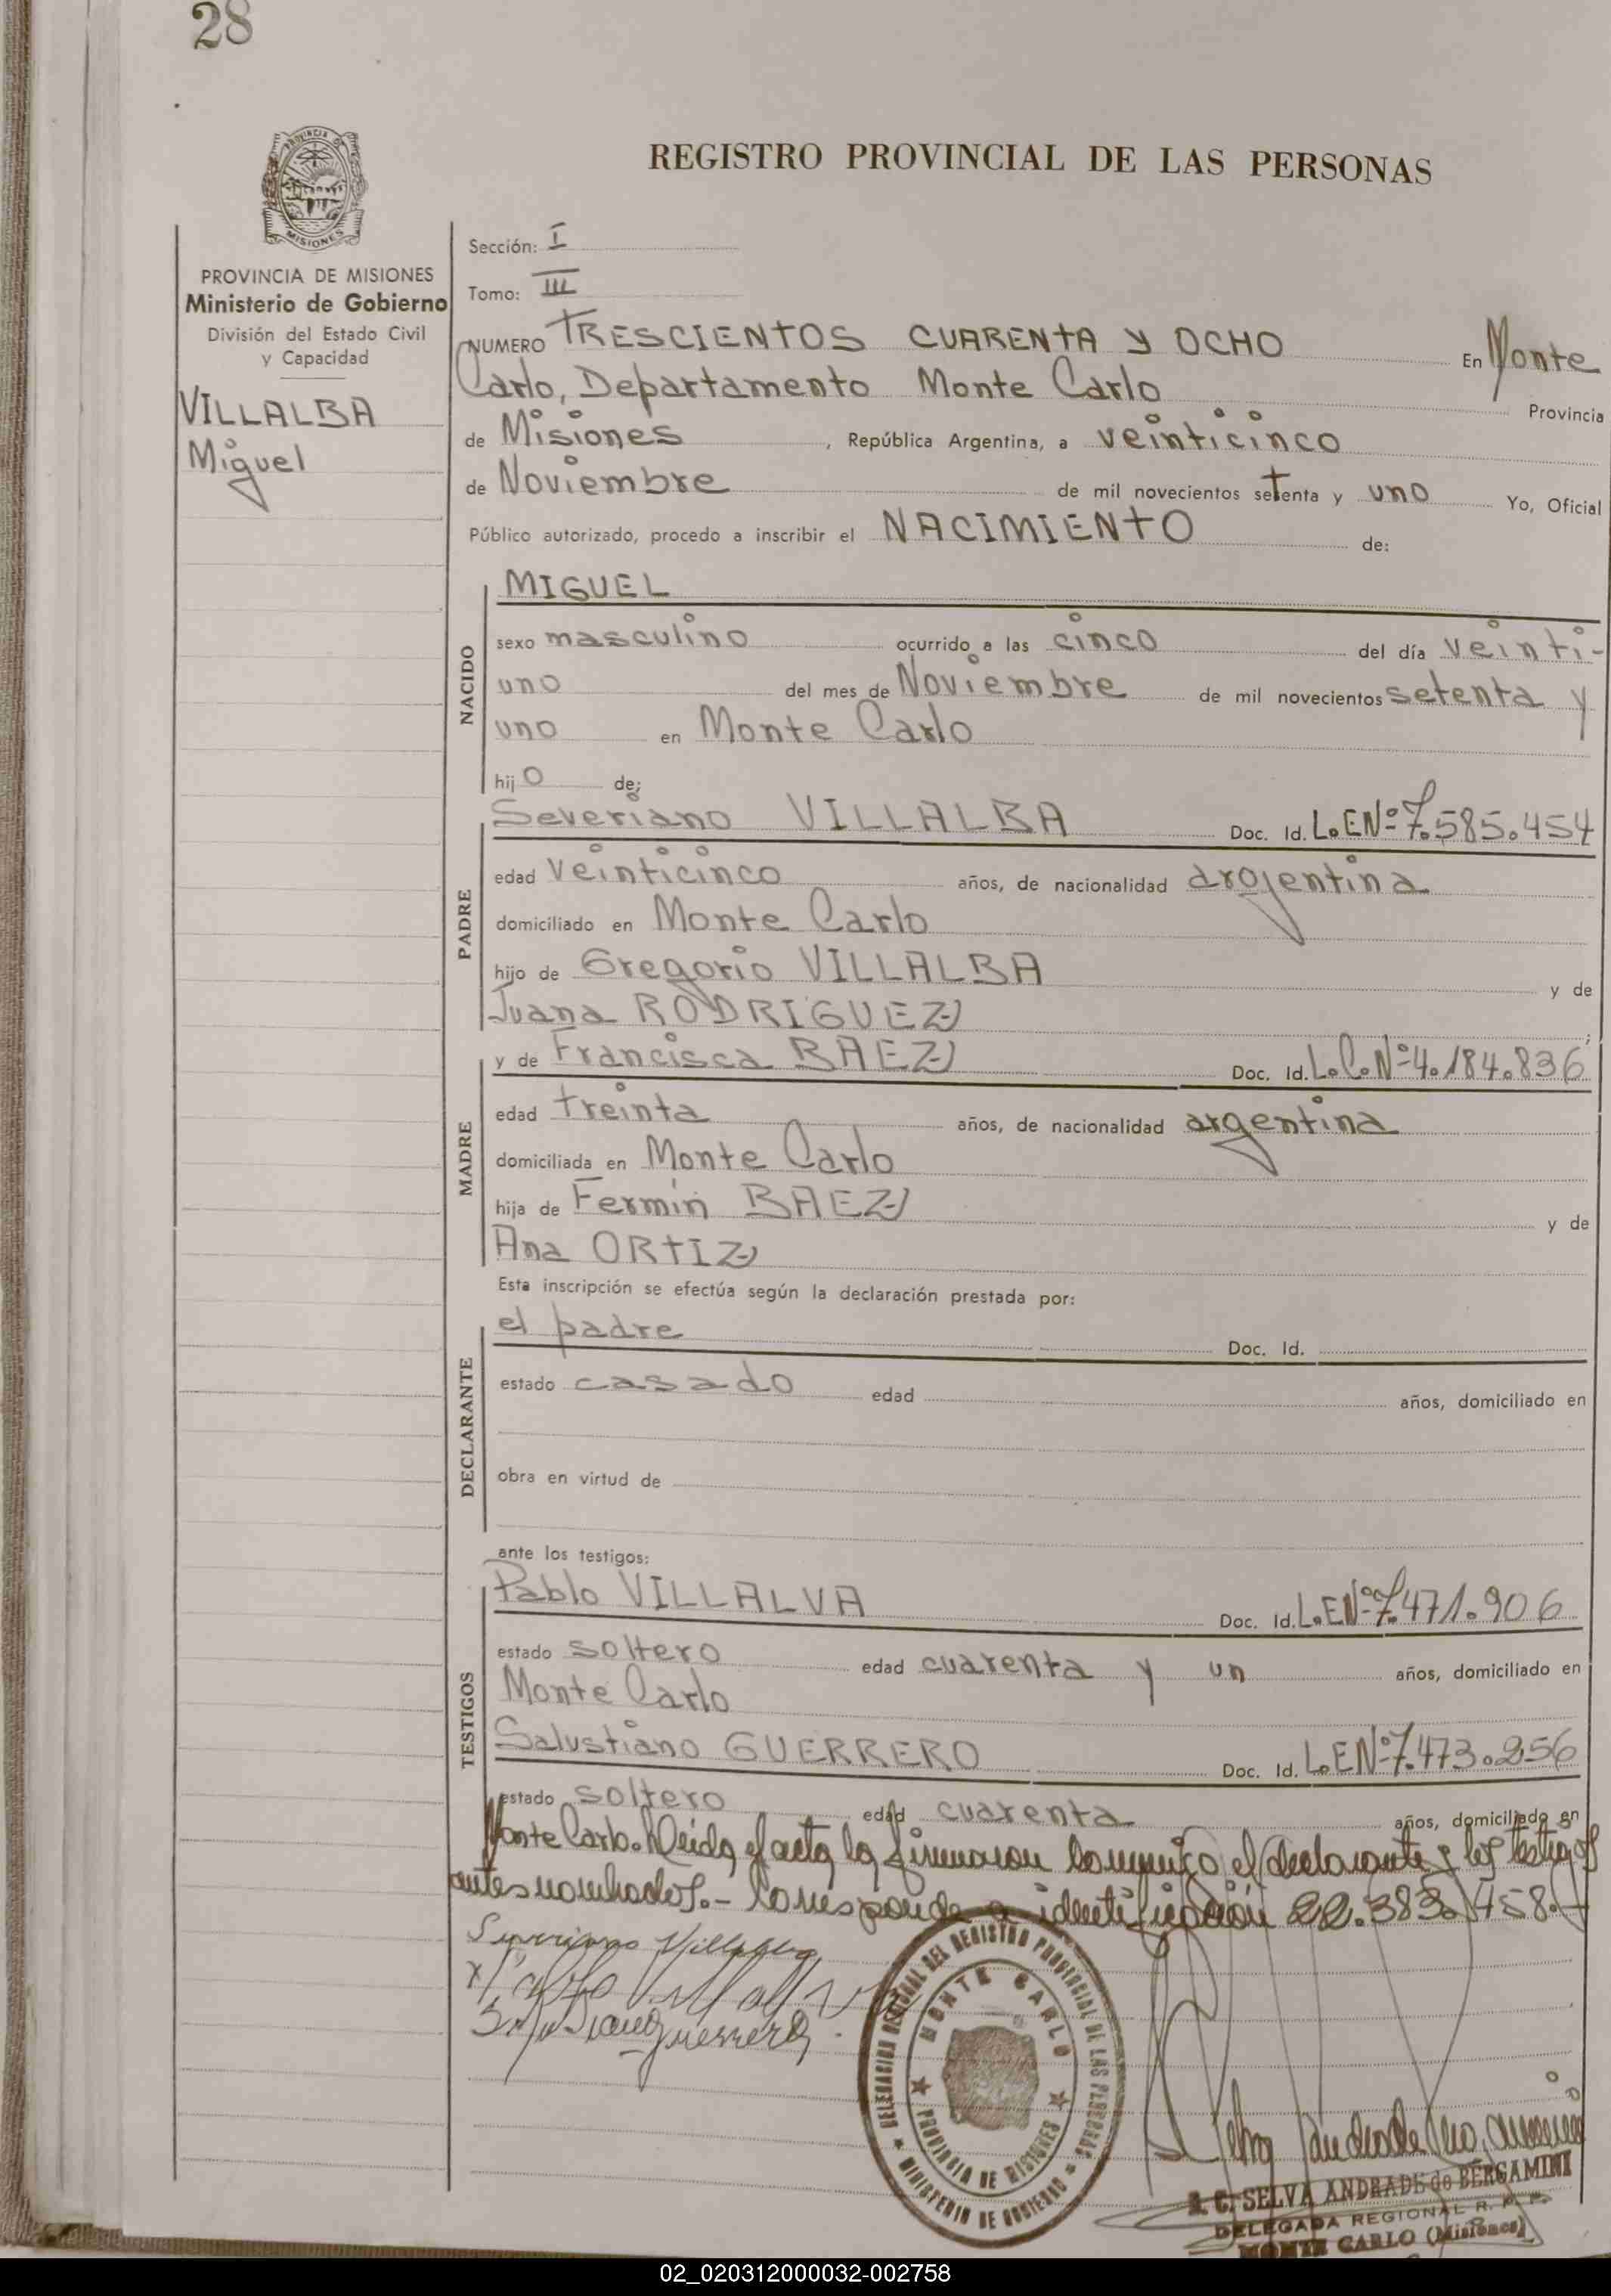 28
PROVINCIA DE MISIONES
REGISTRO PROVINCIAL DE LAS PERSONAS
PROVINCIA DE MISIONES
Ministerio de Gobierno
División del Estado Civil
y Capacidad
VILLALBA
Miguel
Sección: I
Tomo: III
NUMERO TRESCIENTOS CUARENTA Y OCHO En Monte
Carlo, Departamento Monte Carlo Provincia
de Misiones, República Argentina, a veinticinco
de Noviembre de mil novecientos setenta y uno Yo, Oficial
Público autorizado, procedo a inscribir el NACIMIENTO de:
NACIDO
MIGUEL
sexo masculino ocurrido a las cinco del día veinti-
uno del mes de Noviembre de mil novecientos setenta y
uno en Monte Carlo
hijo de:
PADRE
Severiano VILLALBA Doc. Id. L.E.Nº 7.585.454
edad veinticinco años, de nacionalidad argentina
domiciliado en Monte Carlo
hijo de Gregorio VILLALBA y de
Juana RODRIGUEZ;
MADRE
y de Francisca BAEZ Doc. Id. L.C.Nº 4.184.836
edad treinta años, de nacionalidad argentina
domiciliada en Monte Carlo
hija de Fermín BAEZ y de
Ana ORTIZ
Esta inscripción se efectúa según la declaración prestada por:
DECLARANTE
el padre Doc. Id.
estado casado edad años, domiciliado en
obra en virtud de
ante los testigos:
TESTIGOS
Pablo VILLALVA Doc. Id. L.E.Nº 7.471.906
estado soltero edad cuarenta y un años, domiciliado en
Monte Carlo
Salustiano GUERRERO Doc. Id. L.E.Nº 7.473.256
estado soltero edad cuarenta años, domiciliado en
Monte Carlo. Leida el acta la firmaron conmigo el declarante y los testigos
antes nombrados.- Corresponde a identificación 22.383.458.-
Severiano Villalba
Pablo Villalva
Salustiano Guerrero
DELEGACION REGIONAL DEL REGISTRO PROVINCIAL DE LAS PERSONAS
MINISTERIO DE GOBIERNO
MONTE CARLO
PROVINCIA DE MISIONES
SELVA ANDRADE de BERGAMINI
DELEGADA REGIONAL R. P. P.
MONTE CARLO (Misiones)
02_020312000032-002758